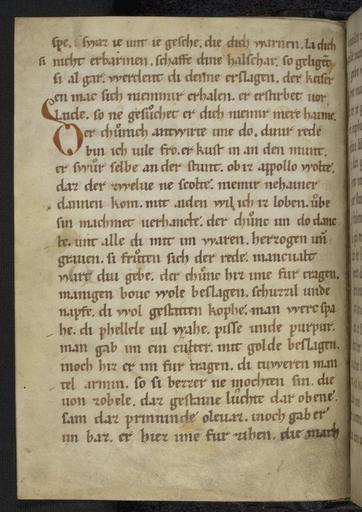 spe. swaz ie unt ie gesche. die dich warnen. la dich
nicht erbarmen. schaffe dine halschar. so geligēt
si al gar. werdent di denne erslagen. der keiser
en mac sich niemmir erhalen. er erstirbet uor
Leide. so ne gesůchet er dich niemir mere haime.
Der chůnich antwirte ime do. dinir rede
bin ich uile fro. er kust in an den munt.
er swůr selbe an der stunt. ob iz appollo wolte.
daz der zwelue ne scolte. niemir nehainer
dannen kom. mit aiden wil ich iz loben. ube
sin machmet uerhancte. der chůnc im do danc
te. unt alle di mit im waren. herzogen uñ
grauen. si fröten sich der rede. mancualt
wart diu gebe. der chůnc hiz ime fur tragen.
manigen bouc wole beslagen. schuzzil unde
napfe. di wol gestalten kophe. man werc spa
he. di phellele uil wahe. pisse unde purpur.
man gab im ein culter. mit golde beslagen.
inoch hiz er im fur tragen. di tiweren man
tel armin. so si bezzer ne mochten sin. die
uon zobele. daz gestaine luchte dar obene.
sam daz prinninde oleuaz. inoch gab er
im baz. er hiez ime fur zihen. die march